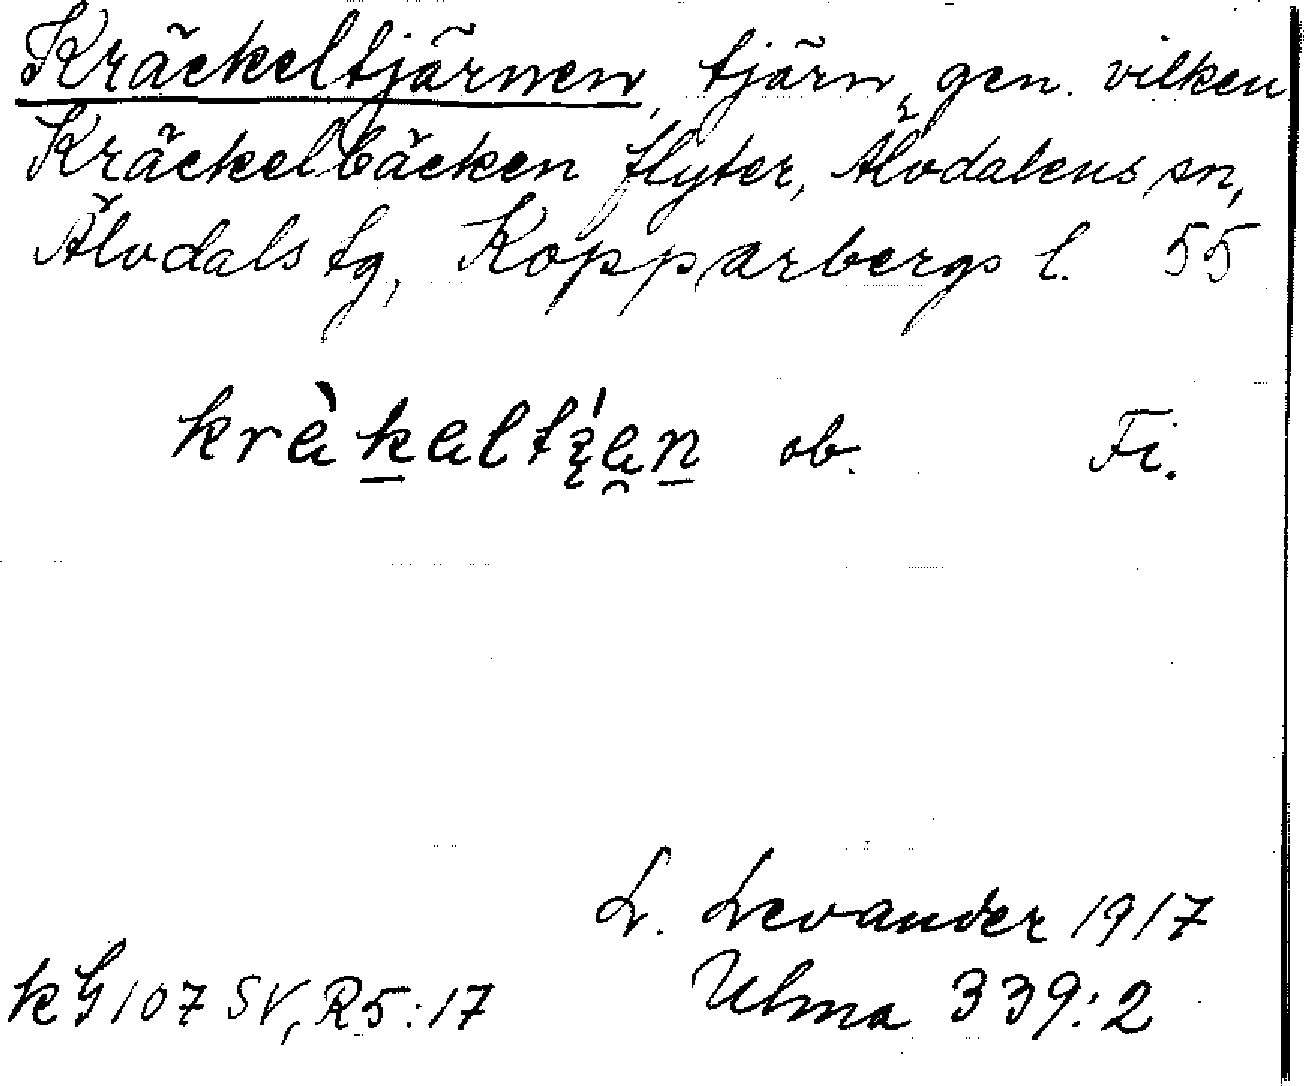 Kräckeltjärnen, tjärn, gen. vilken
Kräckelbäcken flyter, Älvdalens sn,
Älvdals tg, Kopparbergs l. 55
ob. Fi.
L. Levander 1917
kG 107 SV, R5:17 Ulma 339:2